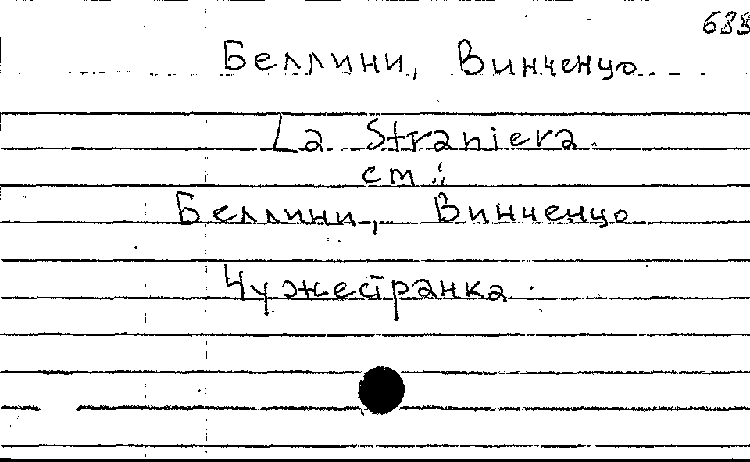 Беллини, Винченцо
La Straniera.
см.:
Беллини, Винченцо
Чужестранка.